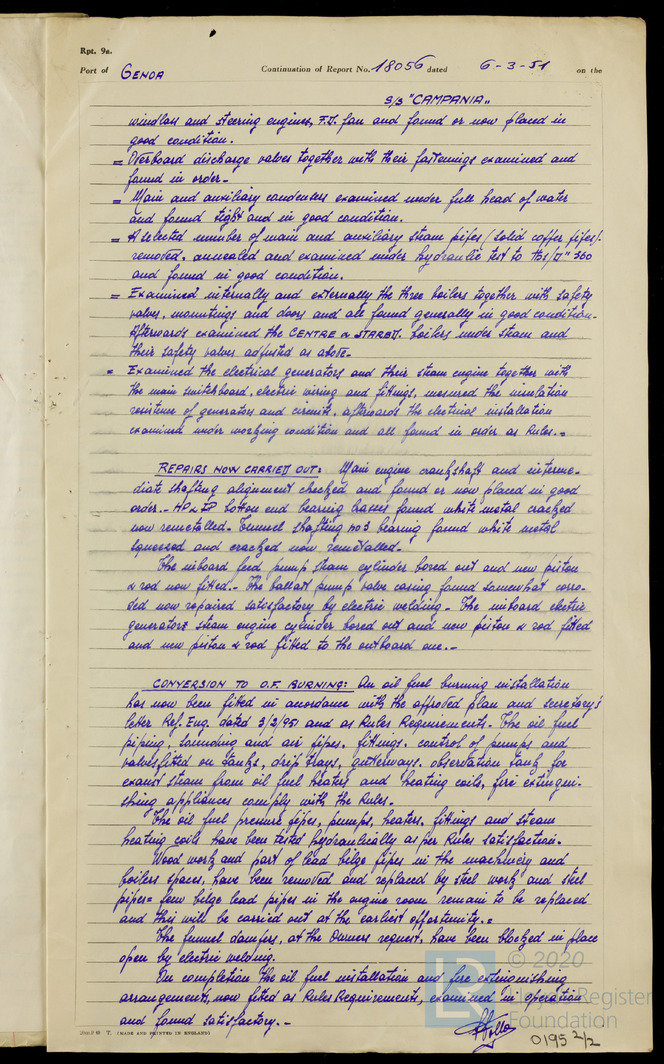 Rpt. 9a.
Port of GENOA Continuation of Report No. 18056 dated 6-3-51 on the
S/S "CAMPANIA"
windlass and steering engines, F.D. fan and found or now placed in
good condition.
= Overboard discharge valves together with their fastenings examined and
found in order.-
= Main and auxiliary condensers examined under full head of water
and found tight and in good condition.
= A selected number of main and auxiliary steam pipes /solid copper pipes/.
removed, annealed and examined under hydraulic test to lbs/□" 360
and found in good condition.
= Examined internally and externally the three boilers together with safety
valves, mountings and doors and all found generally in good condition.
Afterwards examined the CENTRE & STARBD. boilers under steam and
their safety valves adjusted as above.
= Examined the electrical generators and their steam engine together with
the main switchboard, electric wiring and fittings, mesured the insulation
resistence of generators and circuits, afterwards the electrical installation
examined under working condition and all found in order as Rules.=
REPAIRS NOW CARRIED OUT: Main engine crankshaft and interme-
diate shafting alignment checked and found or now placed in good
order.- HP & IP bottom end bearing brasses found white metal cracked
now remetalled. Tunnel shafting no3 bearing found white metal
squeesed and cracked now remetalled.
The inboard feed pump steam cylinder bored out and new piston
& rod now fitted.- The ballast pump valve casing found somewhat corro-
ded now repaired satisfactory by electric welding.- The inboard electric
generators steam engine cylinder bored out and new piston & rod fitted
and new piston & rod fitted to the outboard one.-
CONVERSION TO O.F. BURNING: An oil fuel burning installation
has now been fitted in accordance with the approved plan and secretary's
letter Ref. Eng. dated 3/2/951 and as Rules Requirements. The oil fuel
piping, sounding and air pipes, fittings, control of pumps and
valves fited on tanks, drip trays, gutterways, observation tank for
exaust steam from oil fuel heaters and heating coils, fire extingui-
shing appliances comply with the Rules.
The oil fuel pressure pipes, pumps, heaters, fittings and steam
heating coils have been tested hydraulically as per Rules satisfaction.
Wood work and part of lead bilge pipes in the machinery and
boilers spaces, have been removed and replaced by steel work and steel
pipes= few bilge lead pipes in the engine room remain to be replaced
and this will be carried out at the earliest opportunity.=
The funnel dampers, at the Owners request, have been blocked in place
open by electric welding.
On completion the oil fuel installation and fire extinguishing
arrangements, now fited as Rules Requirements, examined in operation
and found satisfactory.-
T. (MADE AND PRINTED IN ENGLAND)
© 2020
Lloyd's Register
Foundation
0195 2/2